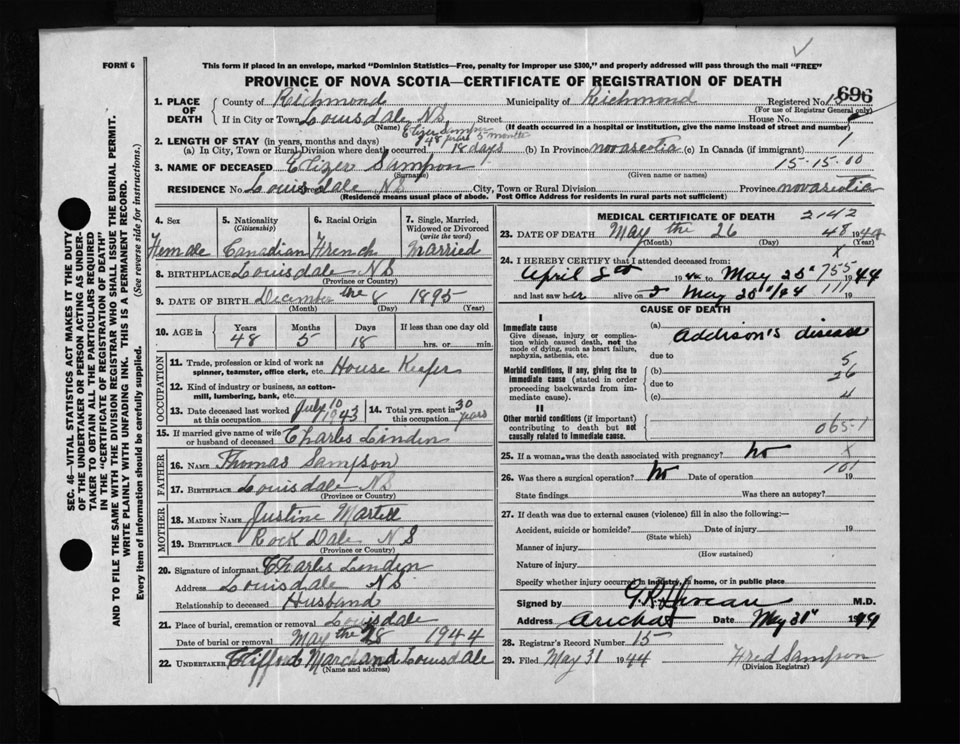 FORM 6
This form if placed in an envelope, marked "Dominion Statistics—Free, penalty for improper use $300," and properly addressed will pass through the mail "FREE"
PROVINCE OF NOVA SCOTIA—CERTIFICATE OF REGISTRATION OF DEATH
696
1. PLACE OF DEATH
County of Richmond Municipality of Richmond Registered No. 15
(For use of Registrar General only)
If in City or Town Louisdale, N.S. Street House No.
(Name) (If death occurred in a hospital or institution, give the name instead of street and number)
2. LENGTH OF STAY (in years, months and days) 48 years 5 months
(a) In City, Town or Rural Division where death occurred 18 days (b) In Province novascotia (c) In Canada (if immigrant) 1
3. NAME OF DECEASED Elizer Sampson 15-15-00
(Surname) (Given name or names)
RESIDENCE No. Louisdale NS City, Town or Rural Division Province novascotia
(Residence means usual place of abode. Post Office Address for residents in rural parts not sufficient)
4. Sex Female
5. Nationality (Citizenship) Canadian
6. Racial Origin French
7. Single, Married, Widowed or Divorced (write the word) Married
8. BIRTHPLACE Louisdale NS
(Province or Country)
9. DATE OF BIRTH December the 8 1895
(Month) (Day) (Year)
10. AGE in Years Months Days If less than one day old
48 5 18 hrs. or min.
OCCUPATION
11. Trade, profession or kind of work as spinner, teamster, office clerk, etc. House Keeper
12. Kind of industry or business, as cotton-mill, lumbering, bank, etc.
13. Date deceased last worked at this occupation July 10 1943
14. Total yrs. spent in this occupation 30 years
15. If married give name of wife or husband of deceased Charles Linden
FATHER
16. NAME Thomas Sampson
17. BIRTHPLACE Louisdale NS
(Province or Country)
MOTHER
18. MAIDEN NAME Justine Martell
19. BIRTHPLACE Rock Dale N S
(Province or Country)
20. Signature of informant Charles Linden
Address Louisdale NS
Relationship to deceased Husband
21. Place of burial, cremation or removal Louisdale
Date of burial or removal May the 28 1944
22. UNDERTAKER Clifford Marchand Louisdale
(Name and address)
MEDICAL CERTIFICATE OF DEATH 2142
23. DATE OF DEATH May the 26 48 1944
(Month) (Day) (Year)
24. I HEREBY CERTIFY that I attended deceased from:
April 8th 1944 to May 25" 755 1944
and last saw her alive on May 25"/44 111 19
CAUSE OF DEATH
I
Immediate cause
Give disease, injury or complication which caused death, not the mode of dying, such as heart failure, asphyxia, asthenia, etc.
(a) Addison's disease
due to
Morbid conditions, if any, giving rise to immediate cause (stated in order proceeding backwards from immediate cause).
(b) 5
26
due to
(c) 4
II
Other morbid conditions (if important) contributing to death but not causally related to immediate cause.
065-1
25. If a woman, was the death associated with pregnancy? No X
101
26. Was there a surgical operation? No Date of operation 19
State findings Was there an autopsy?
27. If death was due to external causes (violence) fill in also the following:—
Accident, suicide or homicide? Date of injury 19
(State which)
Manner of injury
(How sustained)
Nature of injury
Specify whether injury occurred in industry, in home, or in public place
Signed by M.D.
Address Arichat Date May 31" 1944
28. Registrar's Record Number 15
29. Filed May 31 1944 Fred Sampson
(Division Registrar)
SEC. 46—VITAL STATISTICS ACT MAKES IT THE DUTY
OF THE UNDERTAKER OR PERSON ACTING AS UNDER-
TAKER TO OBTAIN ALL THE PARTICULARS REQUIRED
IN THE "CERTIFICATE OF REGISTRATION OF DEATH"
AND TO FILE THE SAME WITH THE DIVISION REGISTRAR WHO SHALL ISSUE THE BURIAL PERMIT.
WRITE PLAINLY WITH UNFADING INK. THIS IS A PERMANENT RECORD.
Every item of information should be carefully supplied. (See reverse side for instructions.)